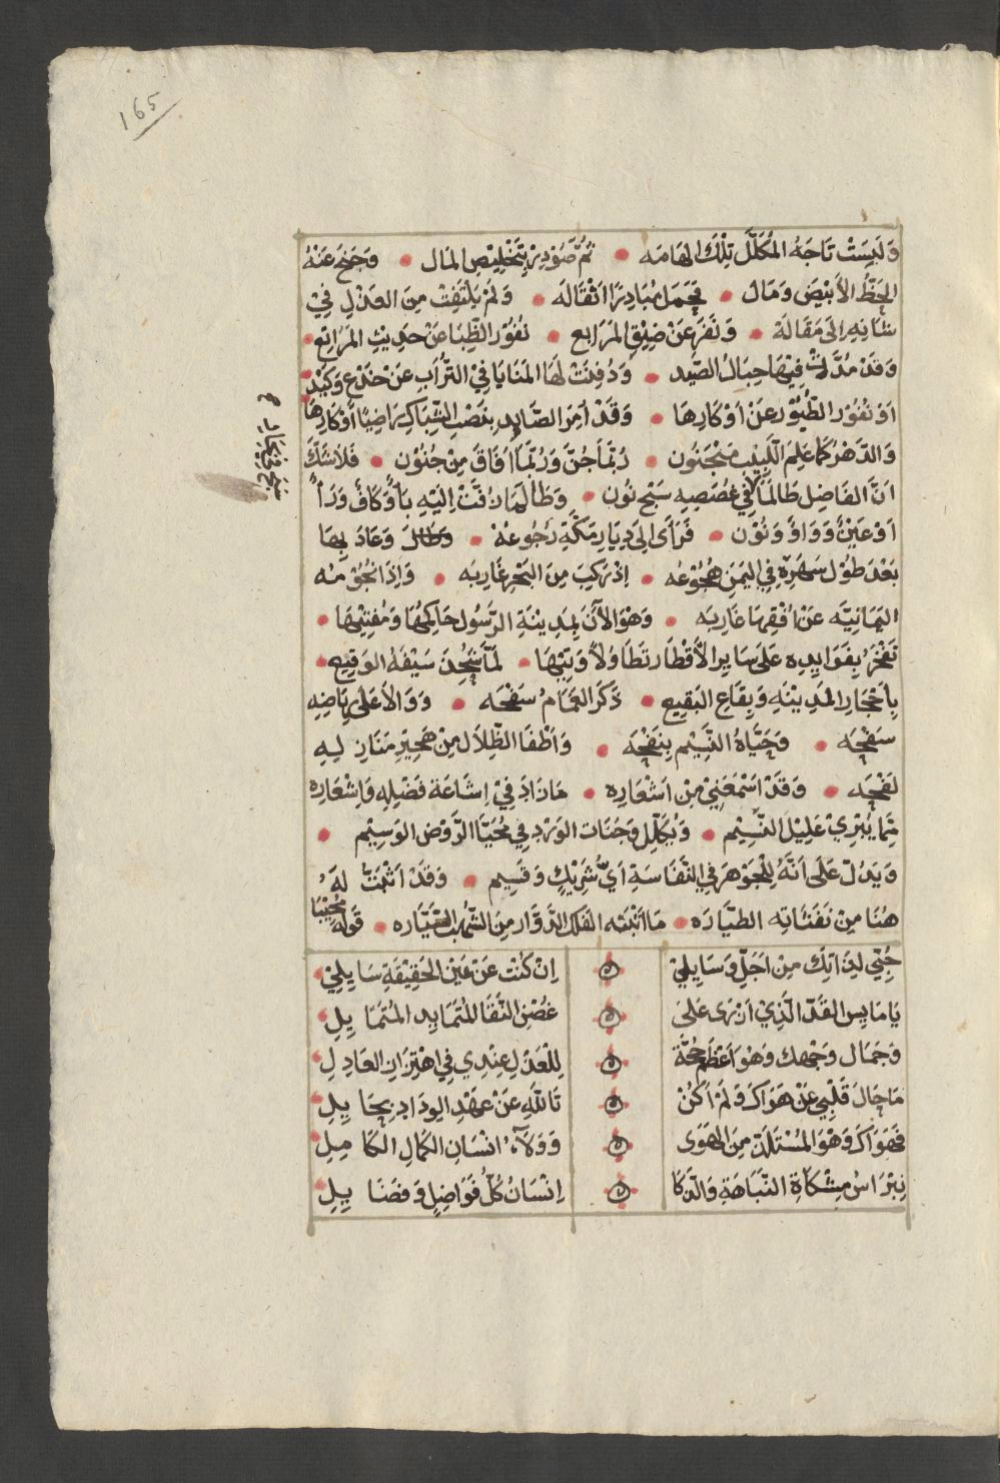 165
وَلَبِسَتْ تَاجَهُ المُكَلَّلَ تِلْكَ الهَامَه • ثُمَّ صُوْدِرَ بِتَخْلِيْصِ المَال • وَجَنَحَ عَنْهُ
الحَظُّ الأَبْيَضُ وَمَالَ • فَحَمَلَ مُبَادِرًا اثْقَالَه • وَلَمْ يَلْتَفِتْ مِنَ العَذْلِ فِيْ
شَانِهِ اِلَى مَقَالَة • وَنَفَرَ عَنْ ضِيْقِ المَرَابِع • نُفُوْرَ الظِّبَا عَنْ حَدِيْثِ المَرَاتِع •
وَقَدْ مُدَّتْ فِيْهَا حِبَالُ الصَّيد • وَدُفِنَتْ لَهَا المَنَايَا فِي التُّرَابِ عَنْ خَدْعٍ وَكَيْد •
اَوْ نُفُوْرَ الطُّيُوْرِ عَنْ اَوْكَارِهَا • وَقَدْ اَمِنَ الصَّايِد بِنَصْبِ الشِّبَاكِ رَاضِيًا أَوْكَارِهًا
وَالدَّهْرُ كَمَا عَلِمَ اللَّبِيْب مَنْجَنُون • رُبَّمَا جُنَّ وَرُبَّمَا اَفَاقَ مِنْ جُنُوْن • فَلَا شَكَّ
اَنَّ الفَاضِل طَالَمَا فِي غُصَصِهِ سَجْنُون • وَطَالَمَا دُفَّتْ اِلَيْهِ بَاءٌ وَكَافٌ وَرَاءٌ
اَوْ عَيْنٌ وَوَاوٌ وَنُوْن • فَرَأَى اِلَى دِيَارِ مَكَّةِ رُجُوعَهُ • وَعَادَ بِهَا
بَعْدَ طُوْل سَهَرِهِ فِي اليَمَن هُجُوْعُه • اِذْ رَكِبَ مِنَ البَحْرِ غَارِبَه • وَاِذَا نُجُوْمُه
اليَمَانِيَّه عَنْ اُفْقِهَا غَارِبَه • وَهْوَ الآنَ بِمَدِيْنَةِ الرَّسُول حَاكِمُهَا وَمُفْتِيْهَا •
تَفْخَرُ بِفَوَايِدِهِ عَلَى سَايِرِ الأَقْطَارِ تَطَاوُلًا وَتِيْهَا • لَمَّا شُحِذَ سَيْفَهُ الوَقِيْع •
بِاَحْجَارِ المَدِيْنَهِ وَبِقَاعِ البَقِيع • ذَكَرَ الغَمَامُ سَفْحَه • وَوَالاَ عَلَى رِيَاضِهِ
سَفْحَه • وَحَيَّاهُ النَّسِيْم بِنَفْحَه • وَاَطْفَا الظِّلَالُ مِنْ هَجِيْرِ مَنَازِلِهِ
لَفْحَه • وَقَدْ اَسْمَعَنِيْ مِنْ اَشْعَارِه • مَا زَادَ فِيْ اِشَاعَةِ فَضْلِهِ وَاِشْعَارِهِ
مِمَّا يُبْرِيْ عَلِيْلَ النَّسِيْم • وَيُكَلِّلُ وَجَنَاتِ الوَرْدِ فِي مُحَيَّا الرَّوْضِ الوَسِيْم •
وَيَدُلّ عَلَى اَنَّهُ لِلْجَوْهَرِ فِي النَّفَاسَةِ اَيُّ شَرِيْكٍ وَقَسِيم • وَقَدْ اَثْبَتُّ لَهُ
هُنَا مِنْ نَفَثَاتِه الطيَّارَه • مَا اَثْبَتَه الفَلَكُ الدَّوَّار مِنَ الشُّهُبِ السَّيَّاره • قَولُه مُجِيْبًا
حُبِّي لِذَاتِكَ مِنْ اَجَلِّ وَسَايِلِيْ اِنْ كُنْتَ عَنْ عَيْنِ الحَقِيْقَةِ سَايِلِيْ
يَا مَايِسَ القَدِّ الَّذِيْ اَزْرَى عَلَى غُصْنِ النَّقَا المُتَمَايِدِ المُتَمَايِلِ
وَجَمَال وَجْهِكَ وَهْوَ اَعْظَمُ حُجَّةً لِلْعَذْلِ عِنْدِي فِي اهْتِزَازِ العَادِلِ
مَا حَالَ قَلْبِي عَنْ هَوَاكَ وَلَمْ اَكُنْ تَاللَّهِ عَنْ عَهْدِ الوِدَادِ بِحَايِلِ
فَهَوَاكَ وَهْوَ المُسْتَلَذُّ مِنَ الهَوَى وَوَلاءُ انْسَانِ الكَمَالِ الكَامِلِ
نِبْرَاسُ مِشْكَاةِ النَّبَاهَةِ وَالذَّكَا اِنْسَانُ كُلِّ فَوَاضِلٍ وَفَضَايِلِ